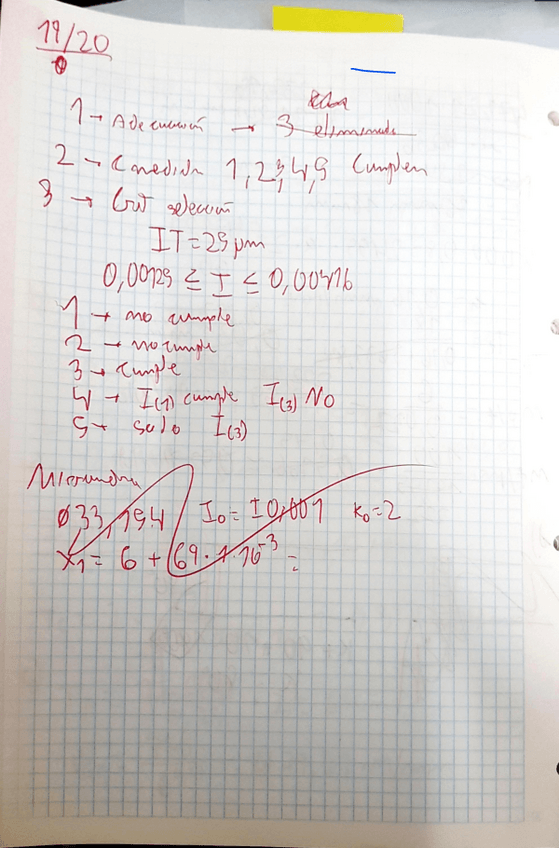 19/20
1 → Adecuación → 3 eliminado
2 → Conedida 1,2,3,4,5 Cumplen
3 → Crit selección
IT = 25 μm
0,00125 ≤ I ≤ 0,00416
1 → no cumple
2 → no cumple
3 → Cumple
4 → I(1) cumple I(3) NO
5 → solo I(3)
Ø33,154 I₀ = ±0,001 K₀=2
X₁ = 6 + 69·1·10⁻³ =